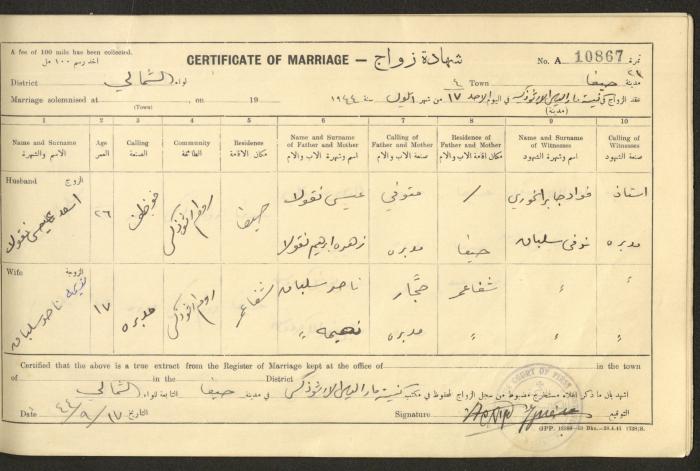 A fee of 100 mils has been collected.
اخذ رسم ١٠٠ مل
CERTIFICATE OF MARRIAGE — شهادة زواج
No. A 10867 نمرة
District الشمالي لواء
Town حيفا مدينة
Marriage solemnised at , on 19
(Town)
عقد الزواج في كنيسة مار الياس الارثوذكسية في اليوم الاحد ١٧ من شهر ايلول سنة ١٩٤٤
(مدينة)
1 2 3 4 5 6 7 8 9 10
Name and Surname الاسم والشهرة
Age العمر
Calling الصنعة
Community الطائفة
Residence مكان الاقامة
Name and Surname of Father and Mother اسم وشهرة الاب والام
Calling of Father and Mother صنعة الاب والام
Residence of Father and Mother مكان اقامة الاب والام
Name and Surname of Witnesses اسم وشهرة الشهود
Calling of Witnesses صنعة الشهود
Husband الزوج
اسعد عيسى نقولا ٢٦ موظف روم ارثوذكس حيفا
عيسى نقولا متوفي / فؤاد جابر الخوري استاذ
زهره ابرهيم نقولا مدبره حيفا سلمان مدبره
Wife الزوجة
نعيمه ناصر سلمان ١٧ مدبره روم ارثوذكس شفاعمر
ناصر سلمان حجّار شفاعمر
نعيمه " مدبره "
Certified that the above is a true extract from the Register of Marriage kept at the office of in the town
of in the District
اشهد بان ما ذكر اعلاه مستخرج مضبوط من سجل الزواج المحفوظ في مكتب كنيسة مار الياس الارثوذكس في مدينة حيفا التابعة للواء الشمالي
Date ١٧/٩/٤٤ التاريخ
Signature التوقيع
COURT OF FIRST